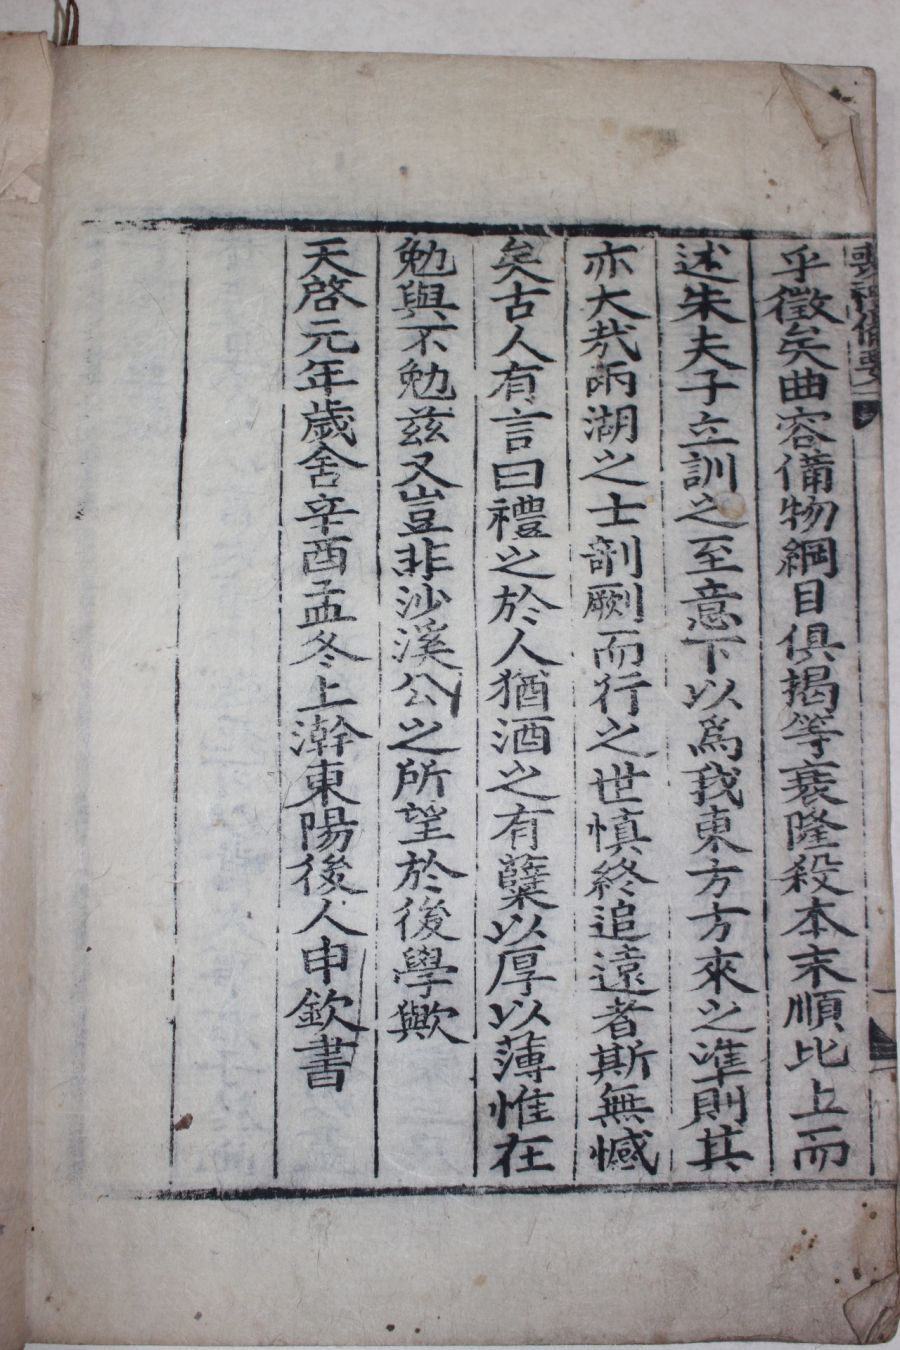 喪禮備要
乎徵矣曲容備物綱目俱揭等衰隆殺本末順比上而
述朱夫子立訓之至意下以爲我東方方來之準則其
亦大哉兩湖之士剞劂而行之世愼終追遠者斯無憾
矣古人有言曰禮之於人猶酒之有糵以厚以薄惟在
勉與不勉玆又豈非沙溪公之所望於後學歟
天啓元年歲舍辛酉孟冬上澣東陽後人申欽書